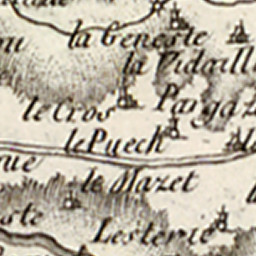 la Geneste
la Vidaill
le Cros
Parga
le Puech
la
que
le Mazet
ste
Lesterie